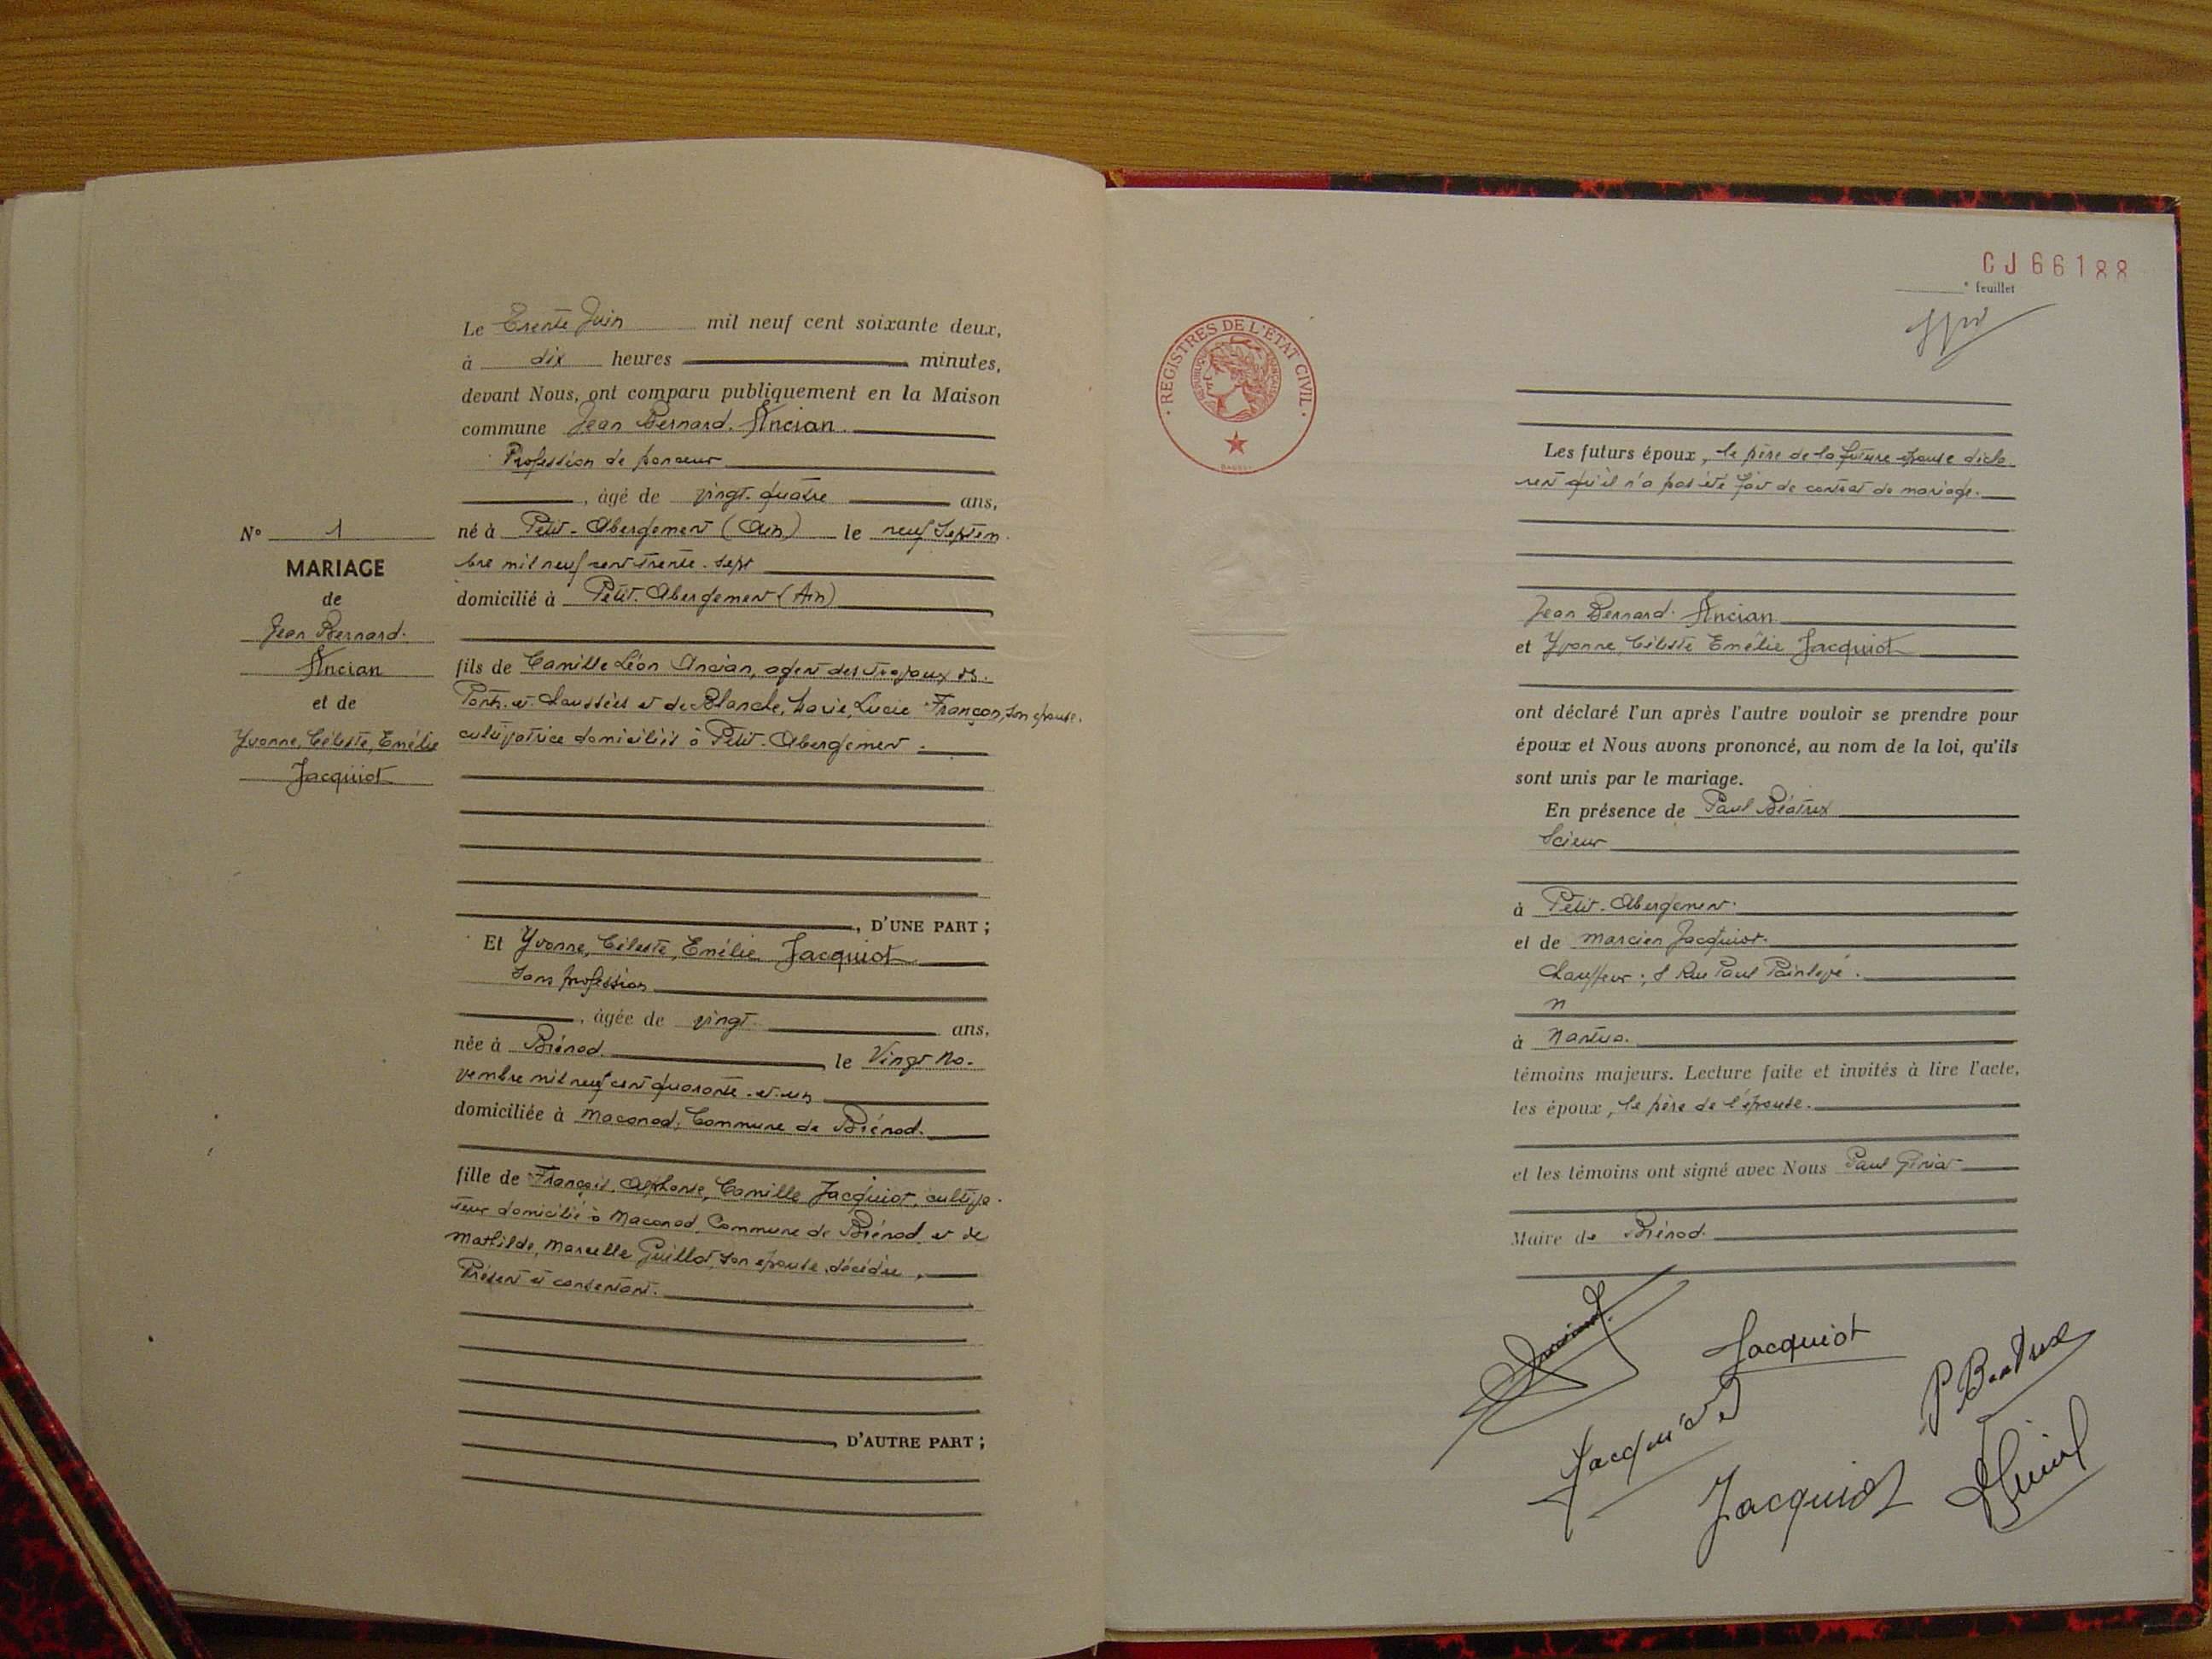 Le Trente Juin mil neuf cent soixante deux,
à dix heures minutes,
devant Nous, ont comparu publiquement en la Maison
commune Jean Bernard Ancian
Profession de ponceur
, âgé de vingt-quatre ans,
né à Petit-Abergement (Ain) le neuf Septem
bre mil neuf cent trente-sept
domicilié à Petit-Abergement (Ain)
fils de Camille Léon Ancian, agent des travaux des
Ponts et Chaussées et de Blanche, Marie, Lucie Françon, son épouse,
cultivatrice domiciliés à Petit-Abergement.
, D'UNE PART ;
Et Yvonne, Céleste, Emélie Jacquiot
sans profession
, âgée de vingt ans,
née à Brénod le Vingt No-
vembre mil neuf cent quarante-et-un
domiciliée à Maconod, Commune de Brénod.
fille de François, Alphonse, Camille Jacquiot, cultiva-
teur domicilié à Maconod, Commune de Brénod et de
Mathilde, Marcelle Guillot, son épouse, décédée,
Présent et consentant.
D'AUTRE PART ;
N° 1
MARIAGE
de
Jean Bernard
Ancian
et de
Yvonne, Céleste, Emélie
Jacquiot
CJ 66188
feuillet
REGISTRES DE L'ÉTAT CIVIL
Les futurs époux, le père de la future épouse décla-
rent qu'il n'a pas été fait de contrat de mariage.
Jean Bernard Ancian
et Yvonne, Céleste Emélie Jacquiot
ont déclaré l'un après l'autre vouloir se prendre pour
époux et Nous avons prononcé, au nom de la loi, qu'ils
sont unis par le mariage.
En présence de Paul Béatrix
Scieur
à Petit-Abergement.
et de Marcien Jacquiot.
Chauffeur ; 8 Rue Paul Painlevé.
n
à Nantua.
témoins majeurs. Lecture faite et invités à lire l'acte,
les époux, le père de l'épouse.
et les témoins ont signé avec Nous Paul
Maire de Brénod.
Jacquiot
P Beatrix
Jacquiot
Jacquiot